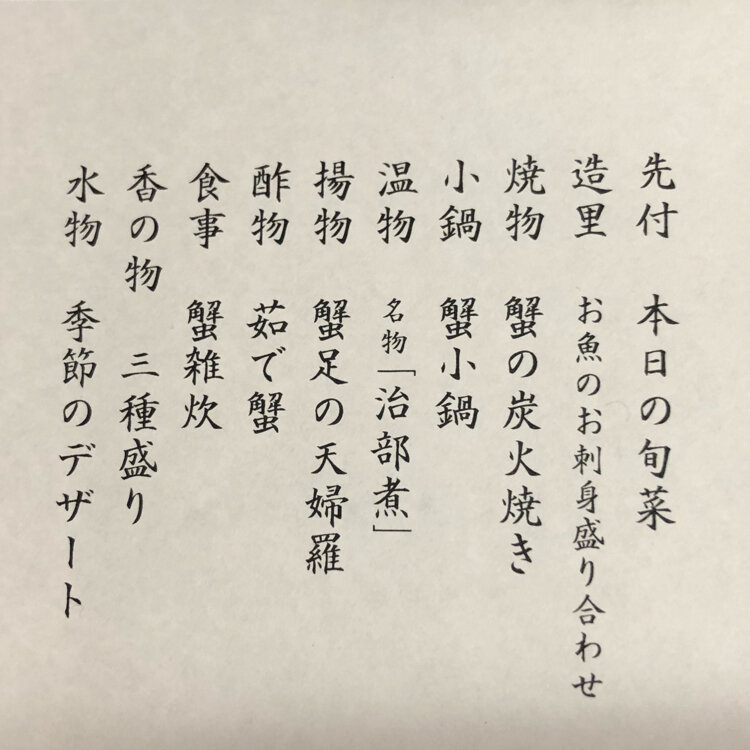 先付　本日の旬菜
造里　お魚のお刺身盛り合わせ
焼物　蟹の炭火焼き
小鍋　蟹小鍋
温物　名物「治部煮」
揚物　蟹足の天婦羅
酢物　茹で蟹
食事　蟹雑炊
香の物　三種盛り
水物　季節のデザート